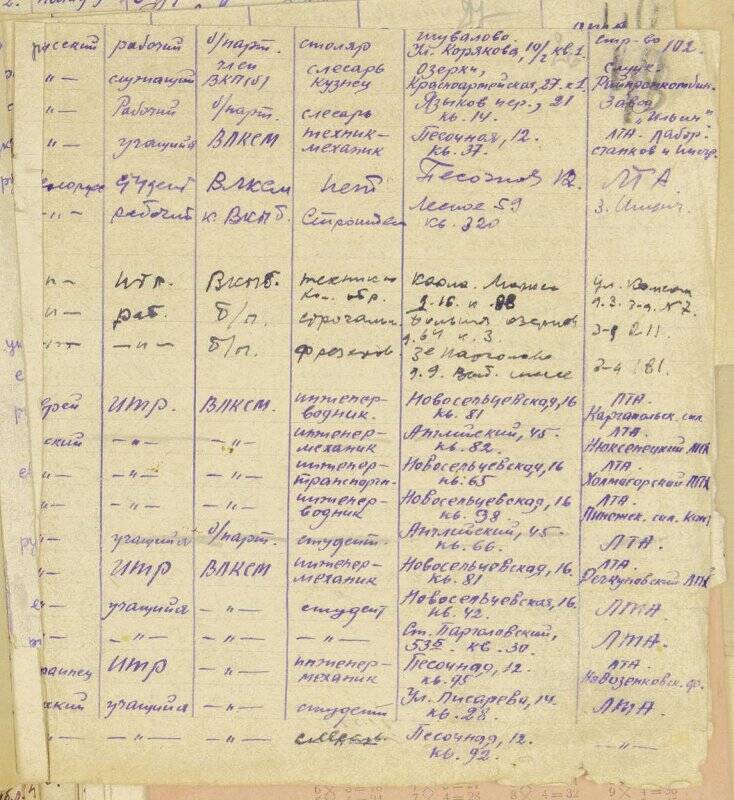 русский рабочий б/парт. столяр Шувалово. Ул. Корякова, 10/2 кв. 1 стр-во 102.
—"— служащий член ВКП(б) слесарь кузнец Озерки, Красноармейская, 27. к. 1 служ. Райпромкомбин.
—"— Рабочий б/парт. слесарь Языков пер., 21 кв. 14. Завод „Ильич"
—"— учащийся ВЛКСМ техник-механик Песочная, 12. кв. 37. ЛТА. Лабор. станков и инстр.
студент ВЛКСМ нет Песочная 12. ЛТА.
—"— рабочий к. ВКПб. Строител Лесное 59 кв. 320 з. Ильич.
—"— ИТР. ВКПб. техник Карла Маркса д. 16. к 88
—"— раб. б/п. Большая Озерная д. 64 к. 3. З-д 211.
—"— б/п. фрезеров. д. 9. З-д 181.
еврей ИТР. ВЛКСМ. инженер-водник. Новосельцевская, 16 кв. 81 ЛТА. Каргапольск. спл
русский —"— —"— инженер-механик Английский, 45. кв. 82. ЛТА. Нюксеницкий ЛПХ
—"— —"— —"— инженер-транспортн. Новосельцевская, 16 кв. 65 ЛТА. Холмогорский ЛПХ
—"— —"— —"— инженер-водник Новосельцевская, 16 кв. 98 ЛТА. Пинежск. спл. конт
—"— учащийся б/парт. студент. Английский, 45. кв. 66. ЛТА.
—"— ИТР ВЛКСМ инженер-механик Новосельцевская, 16. кв. 81 ЛТА. ЛПХ
—"— учащийся —"— студент Новосельцевская, 16. кв. 42. ЛТА.
—"— —"— —"— —"— Ст. Парголовский, 53 кв. 30. ЛТА.
украинец ИТР —"— инженер-механик Песочная, 12. кв. 95 ЛТА.
русский учащийся —"— студент Ул. Писарева, 14. кв. 28. ЛТА.
—"— —"— —"— слесарь. Песочная, 12. кв. 92. —"—